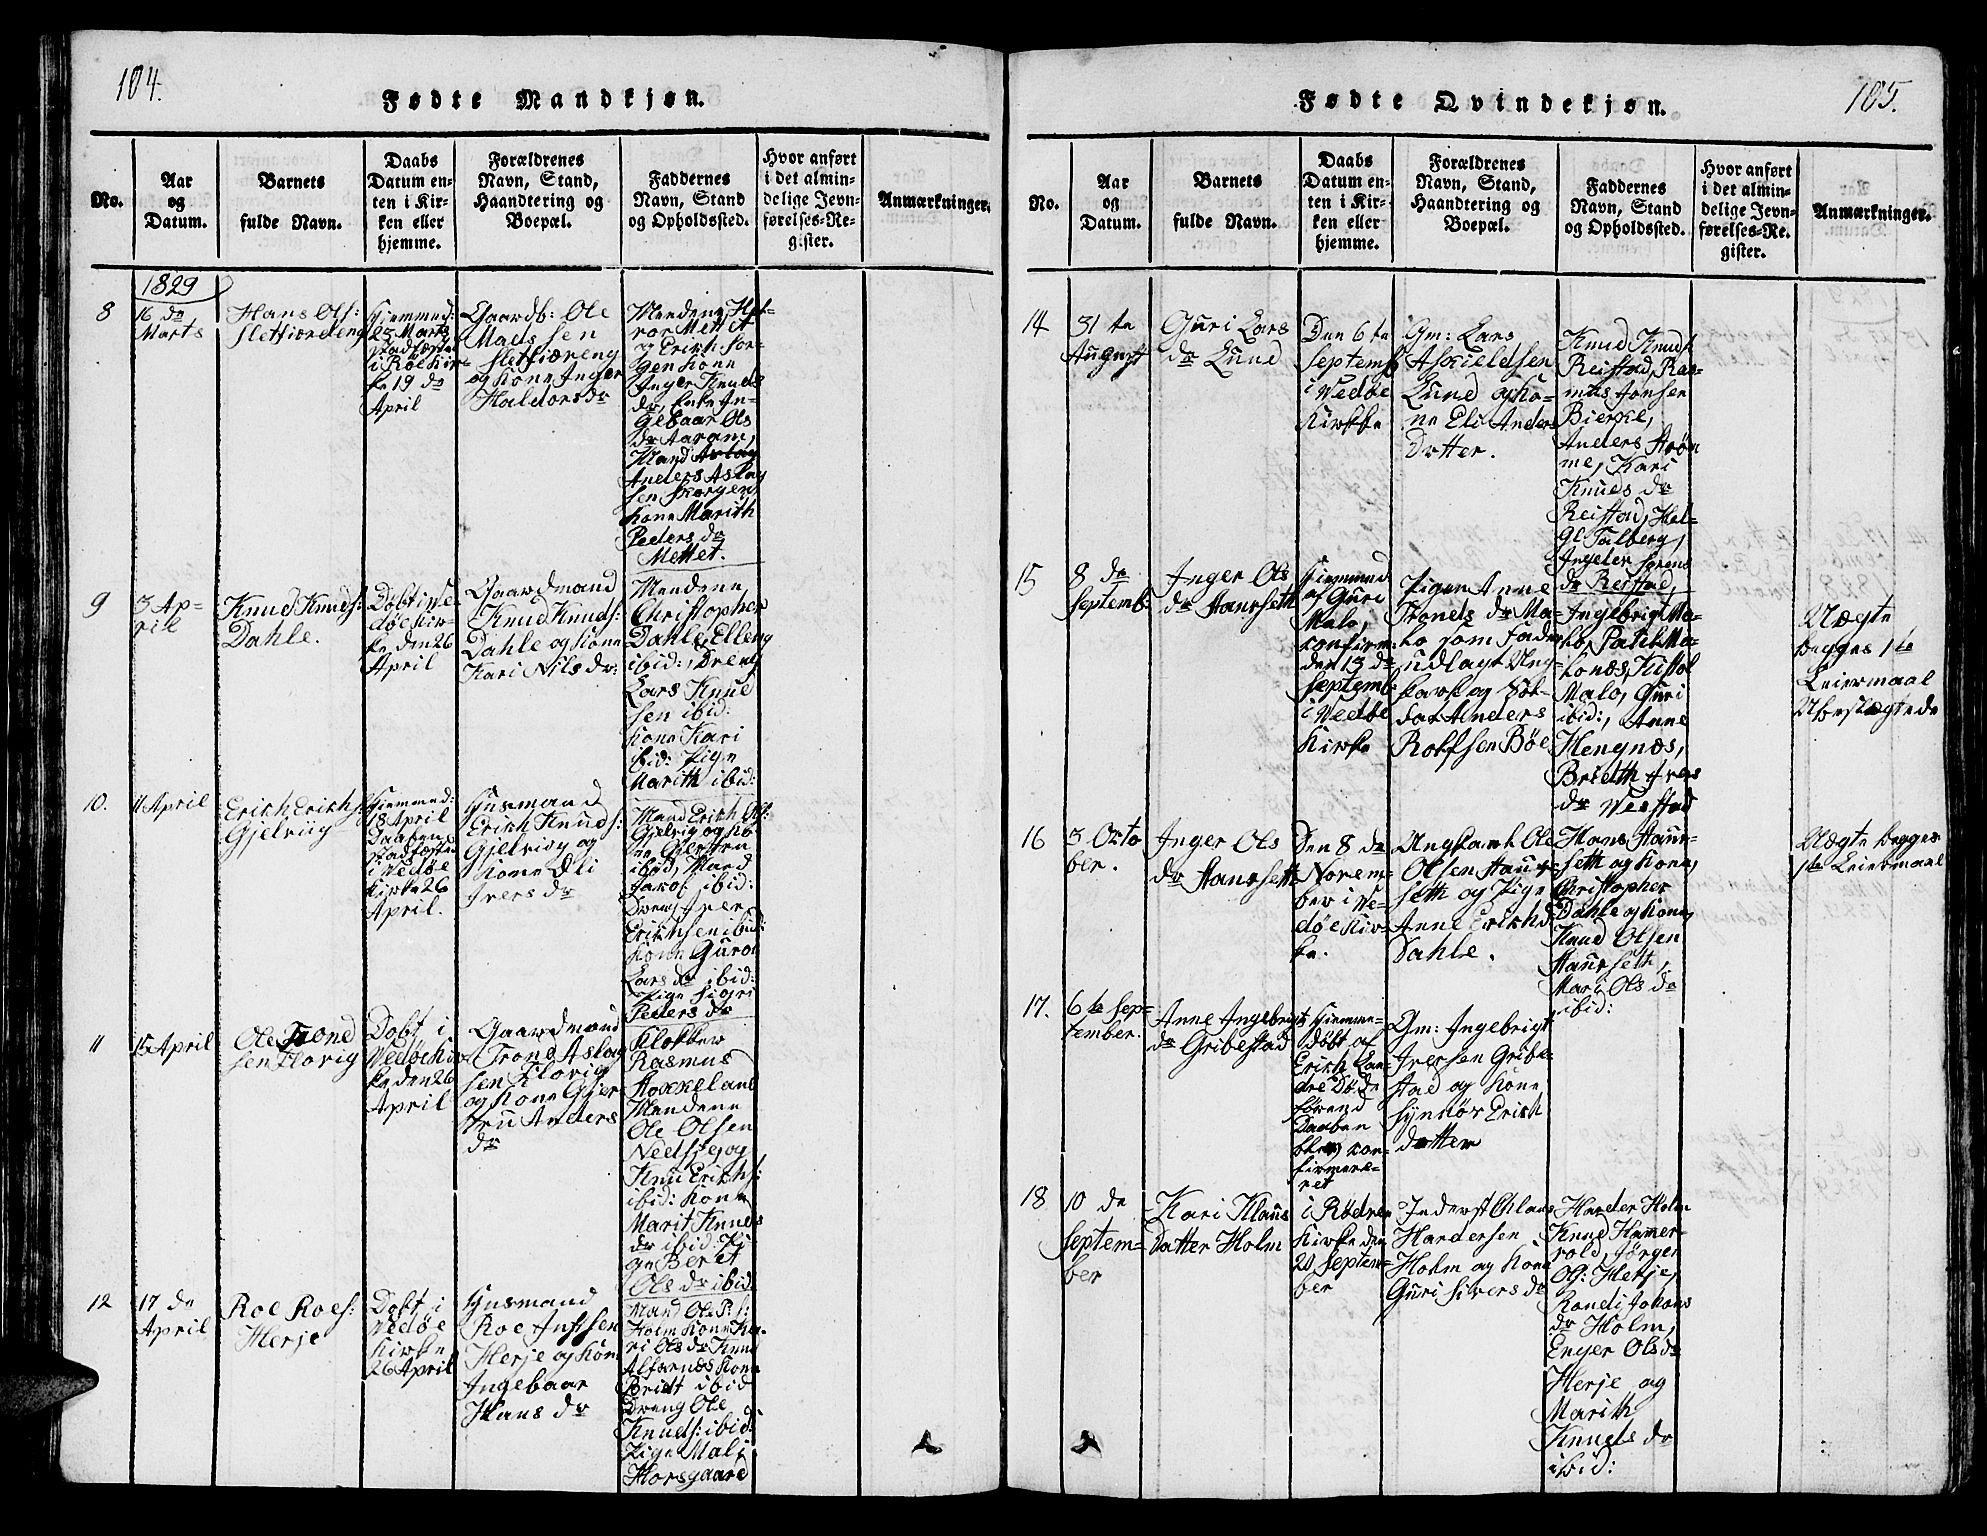 104.
Fødte Mandkjøn.
No.
Aar
og
Datum.
Barnets
fulde Navn.
Daabs
Datum en-
ten i Kir-
ken eller
hjemme.
Forældrenes
Navn, Stand,
Haandtering og
Boepæl.
Faddernes
Navn, Stand
og Opholdssted.
Hvor anført
i det almin-
delige Jevn-
førelses-Re-
gister.
Anmærkninger.
1829
8
16 de
Marts
Hans Ols:
Sletfiordeng
Hjemmed:
23 Marts
stadfæstet
i Røe Kir-
ke 19 de
April
Gaardb: Ole
Madssen
Sletfiæreng
og Kone Inger
Haldorsdr
Mændene
Mettet
og Erich Sor-
gen Kone
Inger Knuds
dr, Enke In-
gebaar Ols
dr Aaram,
Mand
Anders Aslag
sen Skorgen
Kone Marith
Peeters dr
Mettet.
9
3 Ap-
ril
Knud Knuds:
Dahle.
Døbt i Ve-
døe Kir-
ke den 26
April
Gaardmand
Knud Knuds:
Dahle og Kone
Kari Nils dr:
Mændene
Christopher
Dahle, Elling
ibid:, Dreng
Lars Knud
sen ibid:
Kone Kari
ibid: Pige
Marith ibid:
10.
11 April
Erich Erichs:
Gjelvüg
Hjemmed:
18 April
Daaben
stadfæstet
i Vedøe
Kirke 26
April.
Huusmand
Erich Knuds:
Gjelvig og
Kone Eli
Ivers dr
Mand Erich
Gjelvig og Ko
ne
ibid, Mand
Jakob ibid:
Dreng Iver
Erichsen ibid:
Kone Guro
Lars dr ibid:
Pige Sigri
Peders dr
11
15 April
Ole Trond
sen Flovig
Døbt i
Vedøe Kir-
ke den 26
April
Gaardmand
Trond Aslag
sen Flovig
og Kone Gjer
tru Anders
dr
Klokker
Rasmus
Mændene
Ole Olsen
og
Knu Erichs:
ibid: Kone
Marit Knuds
dr ibid: Pi
ge Beret
Ols dr ibid:
12
17 de
April
Roe Roes:
Herje
Døbt i
Vedøe
Kirke
26 April
Huusmand
Roe
Herje og Kone
Ingebaar
Hans dr
Mand Ole P:s:
Holm Kone Ka-
ri Ols dr Knud
Alfarnæs Kone
Beridt ibid
Dreng Ole
Knuds: ibid:
Pige Mali
Horsgaard
105.
Fødte Qvindekjøn.
No.
Aar
og
Datum.
Barnets
fulde Navn.
Daabs
Datum en-
ten i Kir-
ken eller
hjemme.
Forældrenes
Navn, Stand,
Haandtering og
Boepæl.
Faddernes
Navn, Stand
og Opholdssted.
Hvor anført
i det almin-
delige Jevn-
førelses-Re-
gister.
Anmærkninger.
14
31 te
August
Guri Lars
dr Lund
Den 6 te
Septemb
i Vedøe
Kirke
Gm: Lars
Askieldsen
Lund og Ko-
ne Eli Anders
Datter.
Knud Knuds
Reistad, Ras-
mus Jonsen
Bierke,
Anders Strøm
me, Kari
Knuds dr
Reistad, Hel-
ge Talberg,
Ingeler Sørens
dr Reistad,
15
8 de
Septemb:
Inger Ols
dr Haurseth
Hjemmed
af Guri
Malo,
confirm:
den 13 de
Septemb
i Vedøe
Kirke
Pigen Anne
Tronds dr Ma-
lo som Fader
udlagt Ung-
karl og Sol-
dat Anders
Rolfsen Bøe
Ingebrigt Ma-
lo,
Malo, Guri
ibid:, Anne
Hengnæs,
Bridth Ivers
dr Veistad
Uægte
begges 1te
Leiermaal
Ubeslægtede
16
3 Octo
ber.
Inger Ols
dr Haurseth
Den 8 de
Novem-
ber i Ve-
døe Kir-
ke.
Ungkarl Ole
Olsen Haur-
seth og Pige
Anne Erichsd
Dahle.
Hans Haur-
seth og Kone,
Christopher
Dahle og Kone,
Knud Olsen
Haurseth,
Mari Ols dr
ibid:
Uægte begges
1te Leiermaal
17.
6 te Sep-
tember.
Anne Ingebrigt
dr Gribestad
Hiemme-
døbt af
Erich Lan-
dre
Daaben
blev con-
firmere-
ret
Gm: Ingebrigt
Iversen Gribe-
stad og Kone
Synnør Erich
datter
18
10 de
Septem-
ber
Kari Klaus
Datter Holm
i Rødven
Kirke den
20 Septem-
ber
Inderst Claus
Hardersen
Holm og Kone
Guri Sivers dr
Harder Holm
Knud Hamer-
vold, Jørgen
Ols: Herje,
Randi Johans
dr Holm,
Enger Ols dr
Herje og
Marith
Knuds dr
ibid: